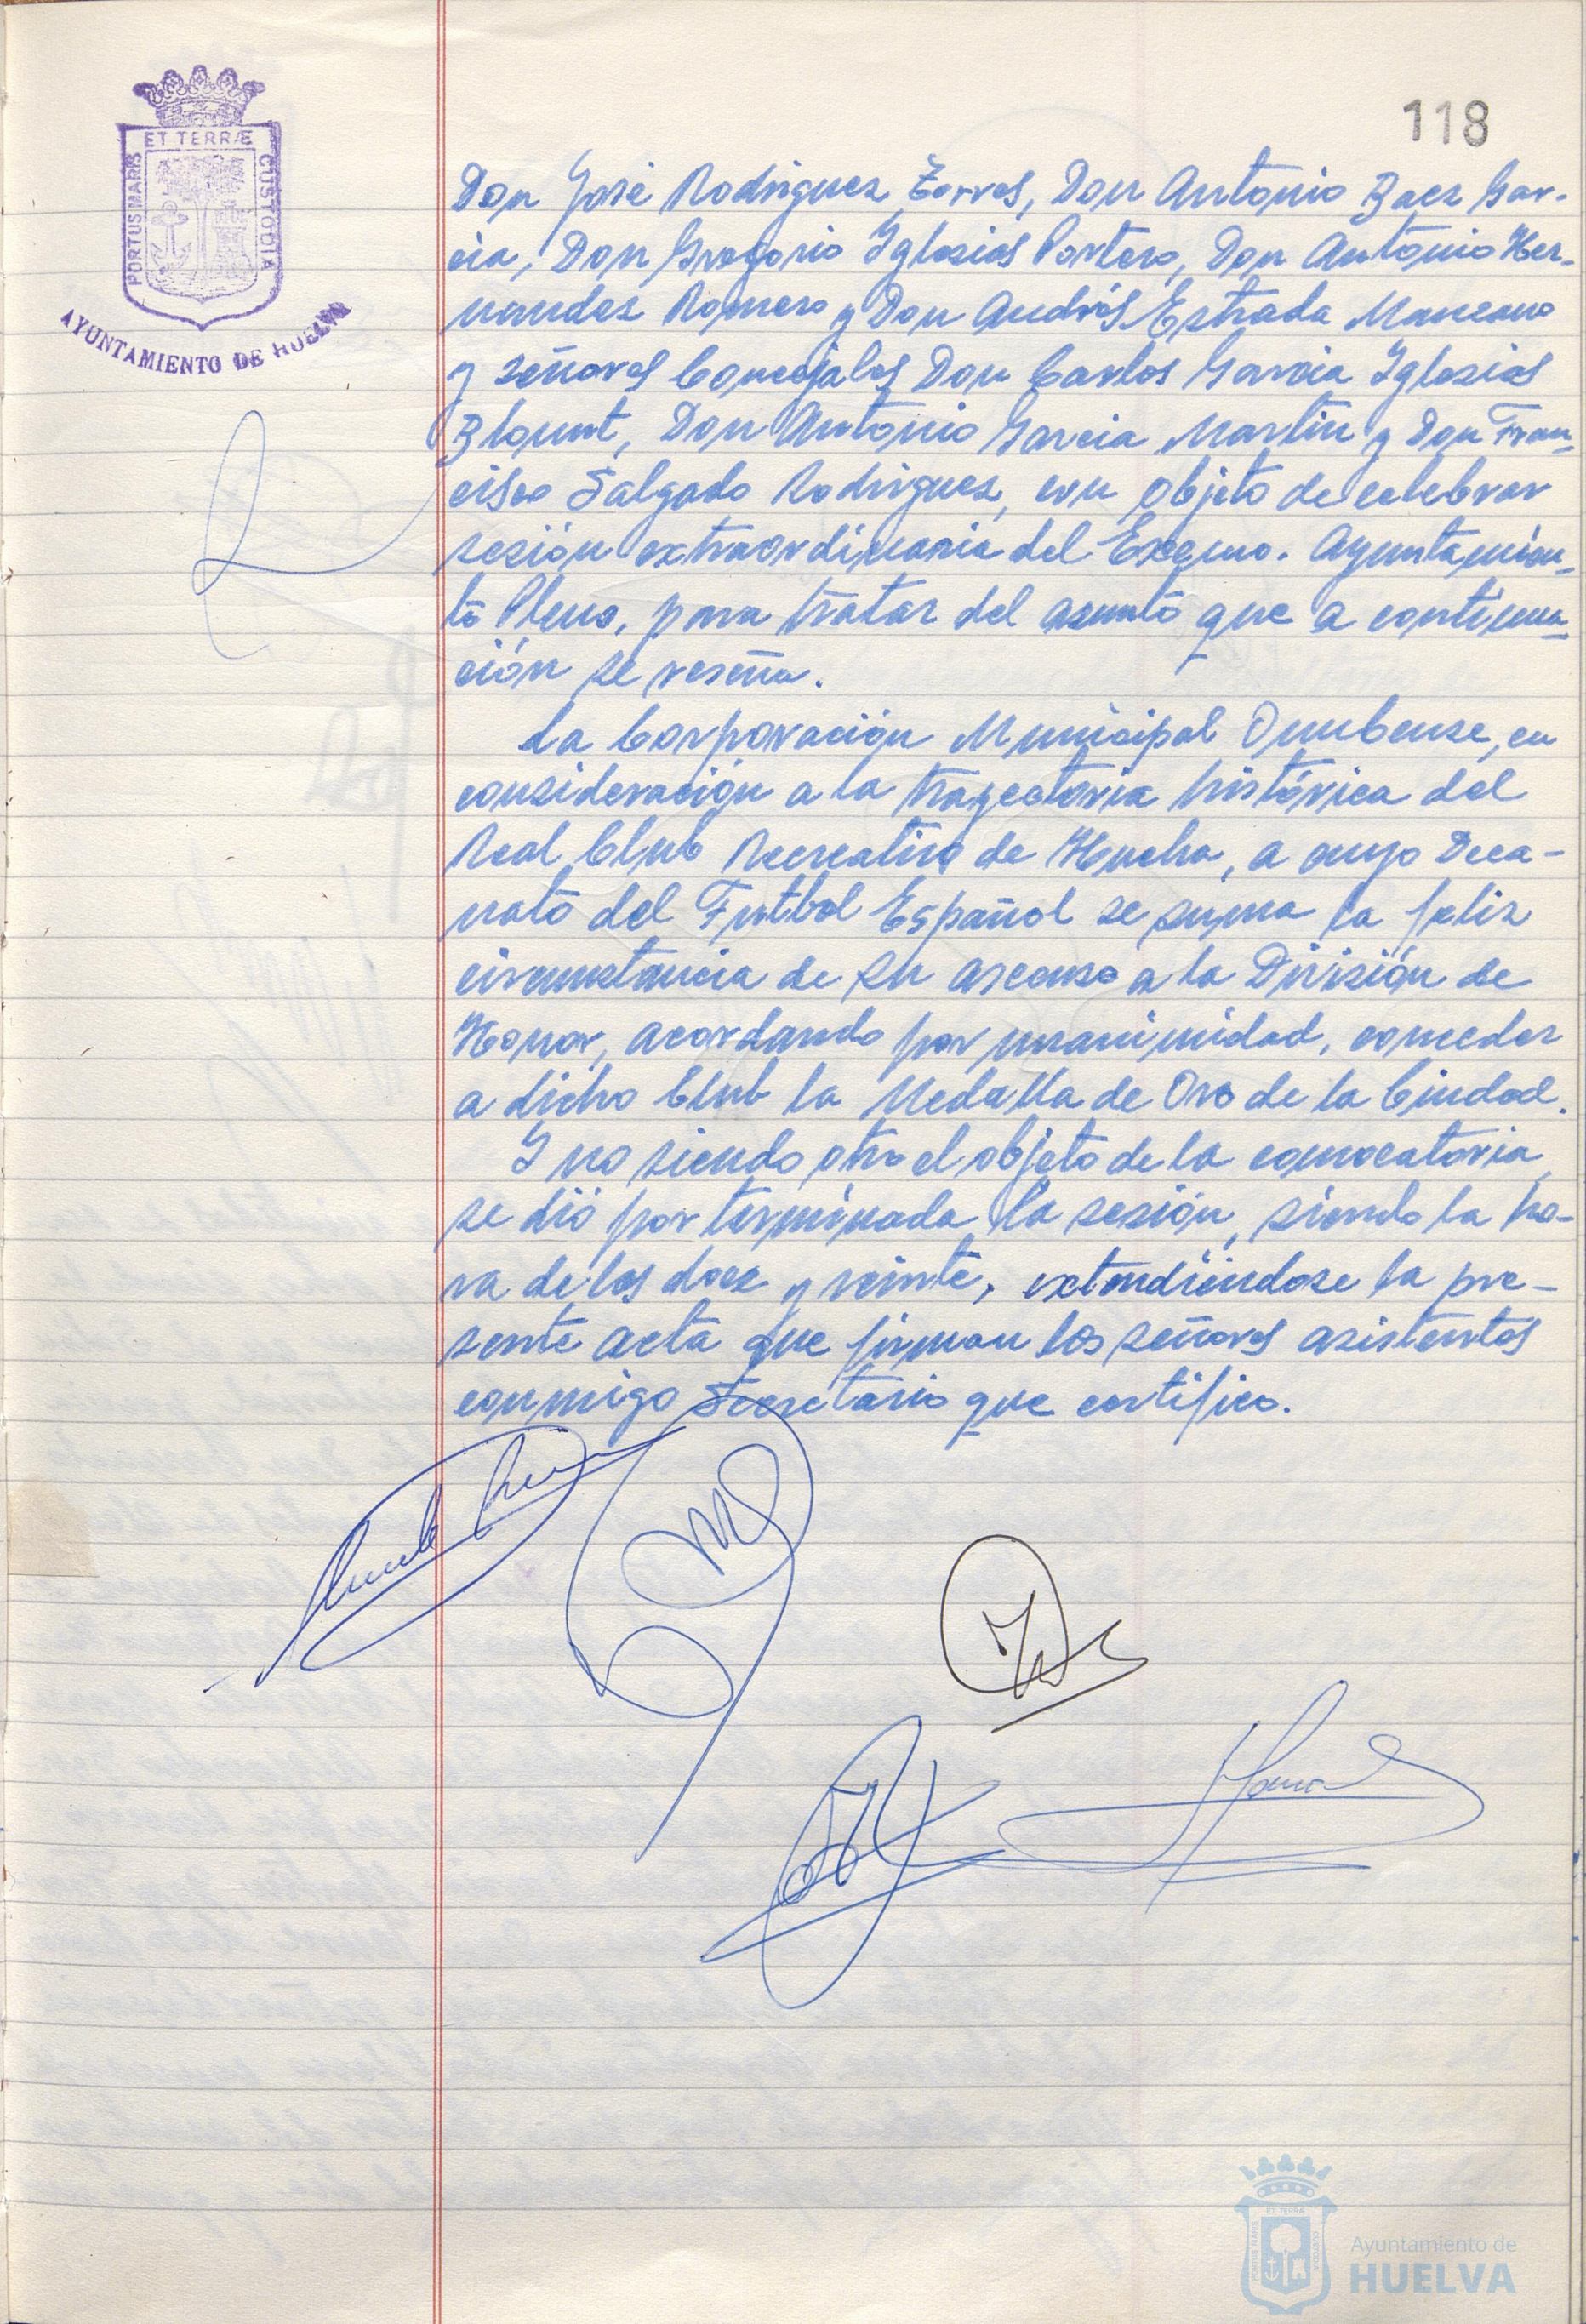 ET TERRÆ
PORTUS MARIS
CUSTODIA
AYUNTAMIENTO DE HUELVA
118
Don José Rodriguez Torres, Don Antonio Baez Gar-
cia, Don Gregorio Iglesias Portero, Don Antonio Her-
nandez Romero y Don Andrés Estrada Manzano
y señores Concejales Don Carlos Garcia Iglesias
Blount, Don Antonio Garcia Martin y Don Fran-
cisco Salgado Rodriguez, con objeto de celebrar
sesión extraordinaria del Excmo. Ayuntamien-
to Pleno, para tratar del asunto que a continua-
ción se reseña.
La Corporación Municipal Onubense, en
consideración a la trayectoria histórica del
Real Club Recreativo de Huelva, a cuyo Deca-
nato del Futbol Español se suma la feliz
circunstancia de su ascenso a la División de
Honor, acordando por unanimidad, conceder
a dicho Club la Medalla de Oro de la Ciudad.
Y no siendo otro el objeto de la convocatoria,
se dió por terminada la sesión, siendo la ho-
ra de las doce y veinte, extendiéndose la pre-
sente acta que firman los señores asistentes
conmigo Secretario que certifico.
Ayuntamiento de
HUELVA